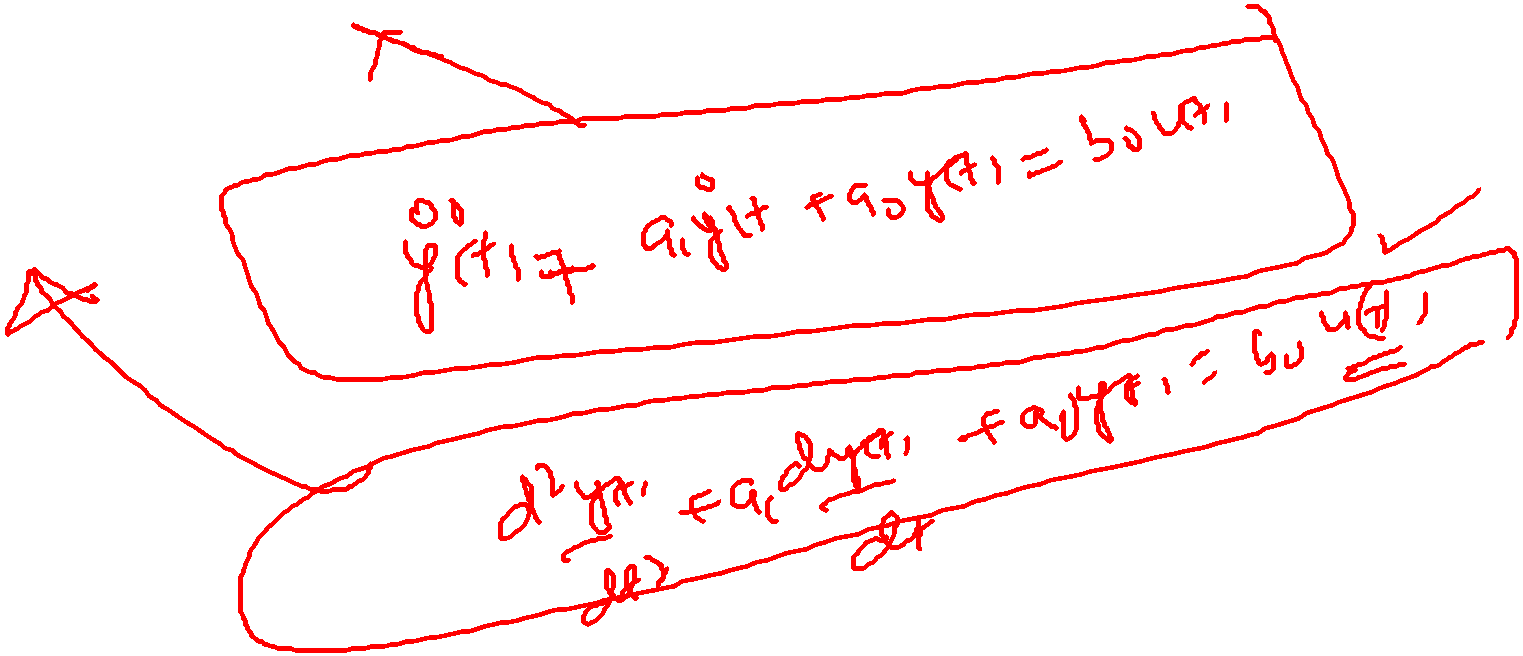 ÿ(t) + a₁ẏ(t + a₀y(t) = b₀u(t)
d²y(t)/dt² + a₁dy(t)/dt + a₀y(t) = b₀u(t)